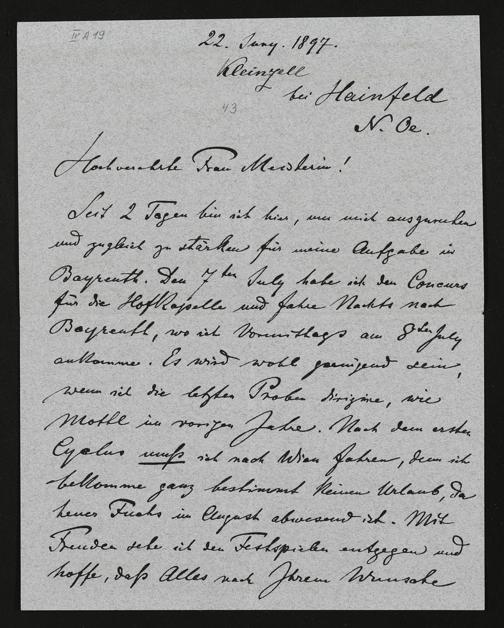 IV A 19
22. Juny. 1897.
Kleinzell
bei Hainfeld
N. Oe.
43
Hochverehrte Frau Meisterin!
Seit 2 Tagen bin ich hier, um mich auszuruhen
und zugleich zu stärken für meine Aufgabe in
Bayreuth. Den 7ten July habe ich den Concurs
für die Hofkapelle und fahre Nachts nach
Bayreuth, wo ich Vormittags am 8ten July
ankomme. Es wird wohl genügend sein,
wenn ich die letzten Proben dirigire, wie
Mottl im vorigen Jahre. Nach dem ersten
Cyclus muß ich nach Wien fahren, denn ich
bekomme ganz bestimmt keinen Urlaub, da
heuer Fuchs im August abwesend ist. Mit
Freuden sehe ich den Festspielen entgegen und
hoffe, daß Alles nach Ihrem Wunsche